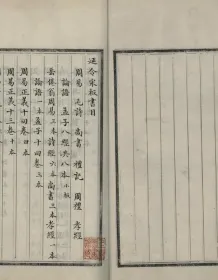 汲古宋板書目
周易 毛詩 尚書 禮記 周禮 孝經
論語 孟子八經共八本
岳倦翁周易三本詩經六本尚書三本孝經一本
論語一本孟子十四卷三本
周易正義十四卷四本
周易正義十三卷十本